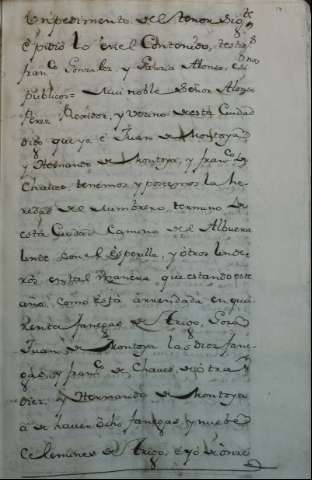 Un pedimento del tenor Sigte
é pidió lo en el Contenido, testigos
franco Gonzalez, y Garcia Alonso,
publicos = Mui noble Señor Alonso
Perez Rexidor, y Vezino de esta Ciudad
digo que yo é Juan de Montoya,
y Hernando de Montoya, y franco de
Chaves tenemos y poseemos la he
redad de Lumbreno, termino de
esta Ciudad Camino de el Albuera
linde con el Esperilla, y otros linde
ros, en tal manera que estando este
año, como está arrendada en qua
renta fanegas de Trigo, Goza
Juan de Montoya las diez fane
gas, y franco de Chaves otra
diez, y Hernando de Montoya
á de haver ocho fanegas y nuebe
Celemines de Trigo, é yo